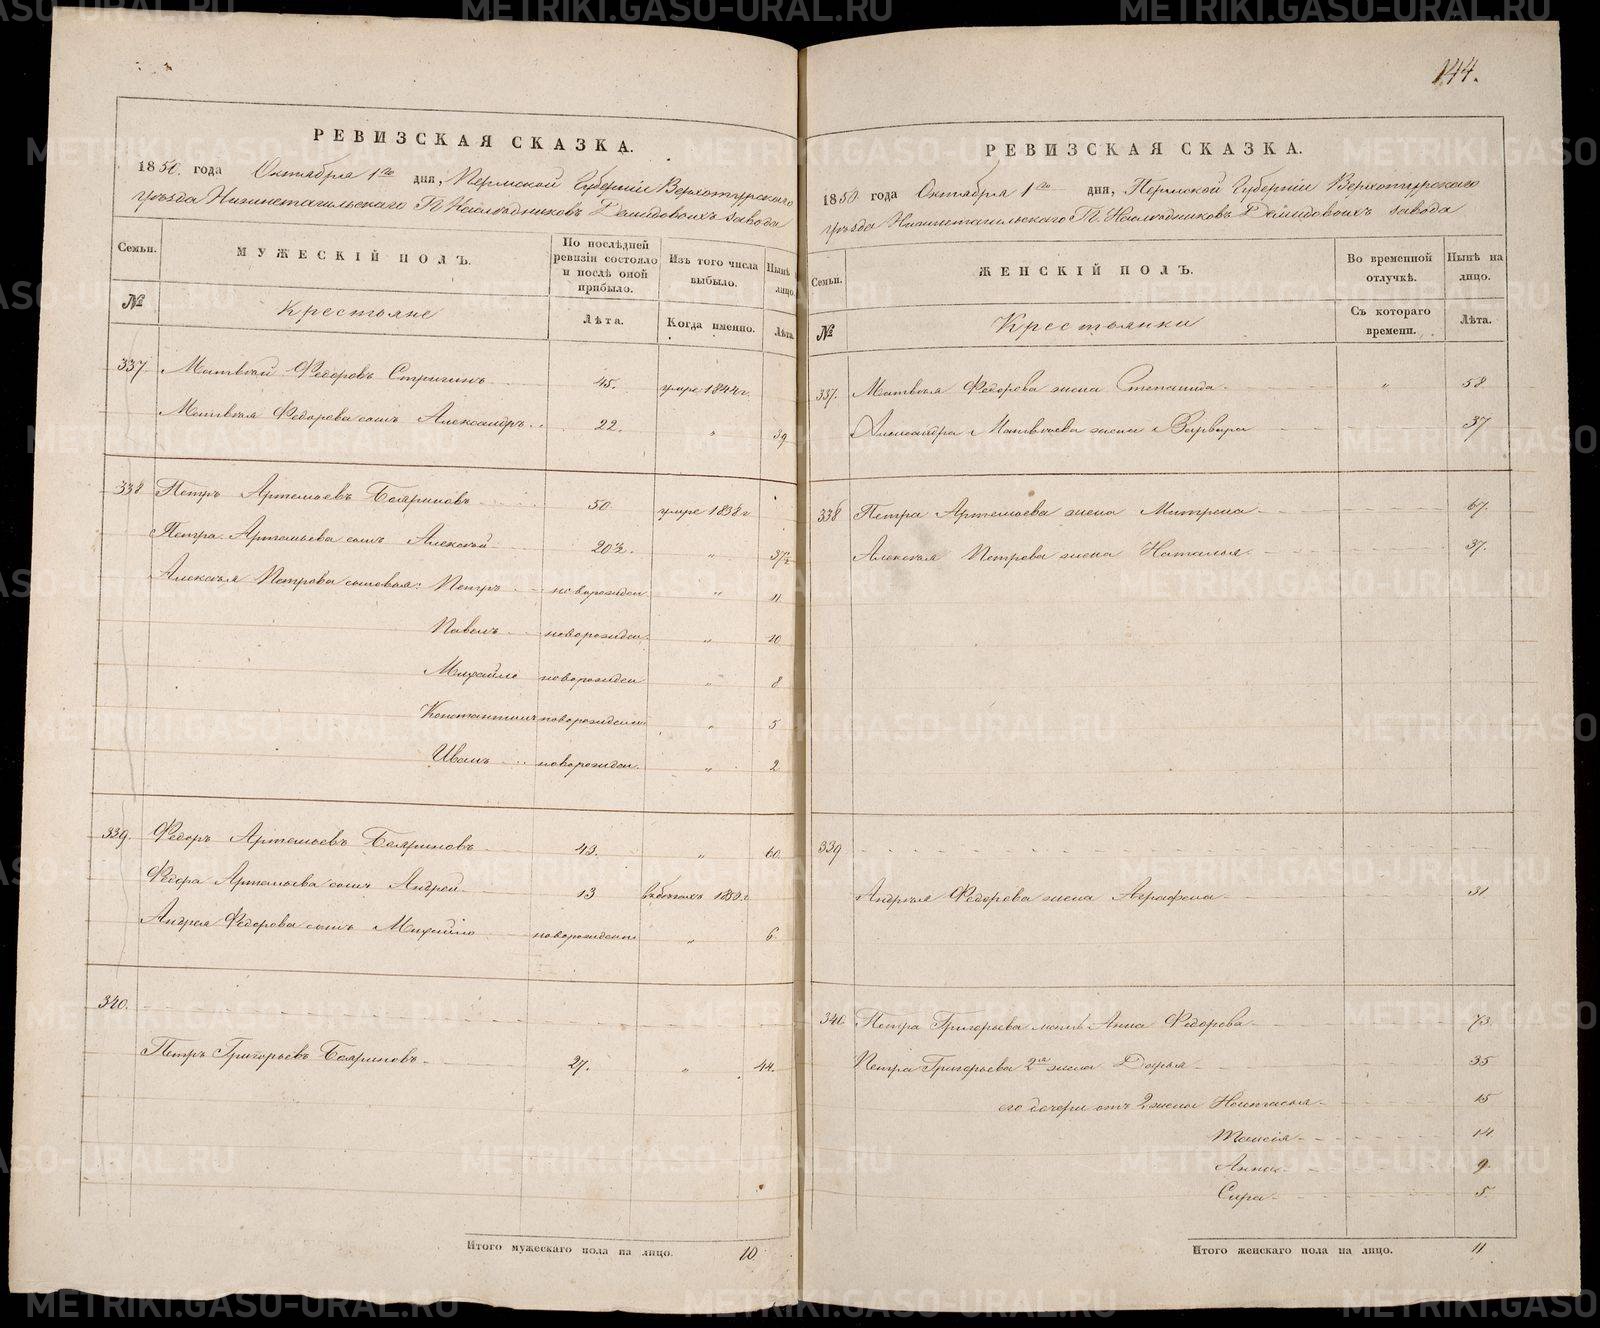 144.
РЕВИЗСКАЯ СКАЗКА.
1850. года Октября 1го дня, Пермской Губерніи Верхотурскаго
уѣзда Нижнетагильскаго Гг. Наслѣдниковъ Демидовыхъ завода
Семьи.
МУЖЕСКІЙ ПОЛЪ.
По послѣдней ревизіи состояло и послѣ оной прибыло.
Изъ того числа выбыло.
Нынѣ на лицо.
№
Крестьяне
Лѣта.
Когда именно.
Лѣта.
337 Матвѣй Федоровъ Стригинъ 45. умре 1844 г.
Матвѣя Федорова сынъ Александръ 22. „ 39
338 Петръ Артемьевъ Бояриновъ 50 умре 1838 г
Петра Артемьева сынъ Алексѣй 20½. „ 37½
Алексѣя Петрова сыновья: Петръ новорожден „ 11
Павелъ новорожден. „ 10
Михайло новорожден „ 8
Константинъ новорожденъ „ 5
Иванъ новорожден. „ 2
339. Федоръ Артемьевъ Бояриновъ 43. „ 60
Федора Артемьева сынъ Андрей 13 въ бѣгахъ 1850 г
Андрея Федорова сынъ Михайло новорожденъ „ 6
340.
Петръ Григорьевъ Бояриновъ 27. „ 44.
Итого мужескаго пола на лицо. 10
РЕВИЗСКАЯ СКАЗКА.
1850 года Октября 1го дня, Пермской Губерніи Верхотурскаго
уѣзда Нижнетагильскаго Гг. Наслѣдниковъ Демидовыхъ завода
Семьи.
ЖЕНСКІЙ ПОЛЪ.
Во временной отлучкѣ.
Нынѣ на лицо.
№
Крестьянки
Съ котораго времени.
Лѣта.
337. Матвѣя Федорова жена Степанида „ 58
Александра Матвѣева жена Варвара 37
338 Петра Артемьева жена Митрена 67.
Алексѣя Петрова жена Наталья 37.
339
Андрѣя Федорова жена Аграфена 31
340 Петра Григорьева мать Анна Федорова 73
Петра Григорьева 2ая жена Дарья 35
его дочери отъ 2 жены Настасья 15
Таисія 14
Анна 9
Сира 5
Итого женскаго пола на лицо. 11
METRIKI.GASO-URAL.RU